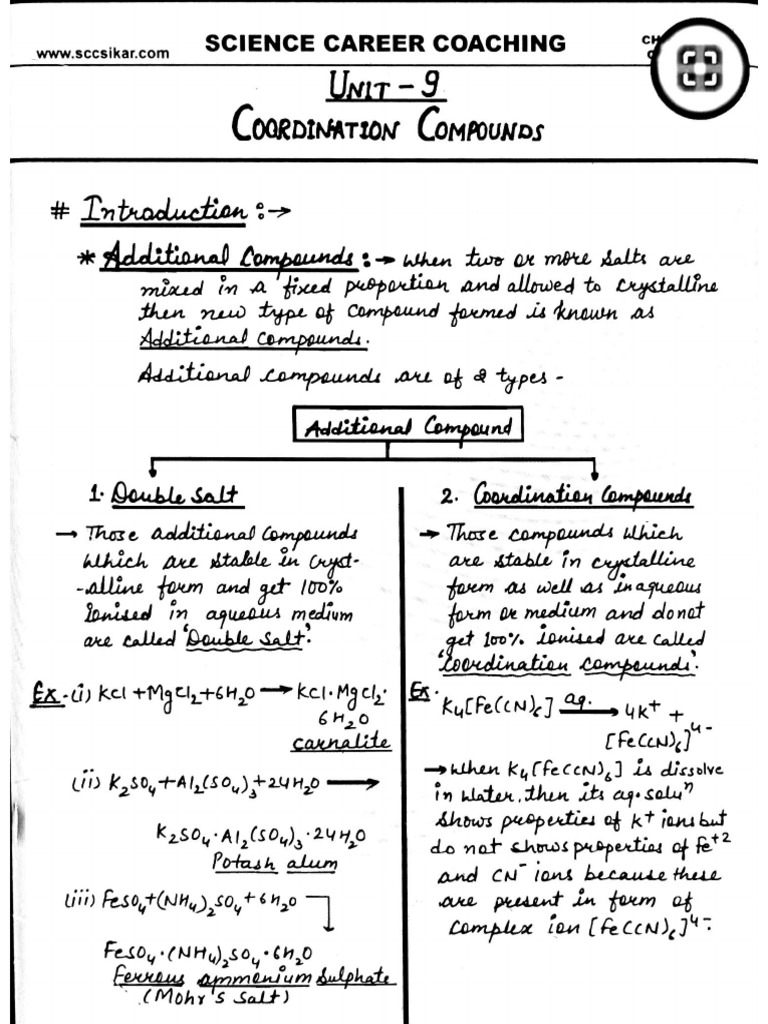 www.sccsikar.com
SCIENCE CAREER COACHING
CH
UNIT - 9
COORDINATION COMPOUNDS
# Introduction :→
* Additional Compounds :→ When two or more salts are
mixed in a fixed proportion and allowed to crystalline
then new type of compound formed is known as
Additional compounds.
Additional compounds are of 2 types -
Additional Compound
1. Double Salt
→ Those additional compounds
which are stable in cryst-
-alline form and get 100%
Ionised in aqueous medium
are called 'Double Salt'.
Ex.-(i) KCl + MgCl2 + 6H2O → KCl·MgCl2·
6H2O
carnalite
(ii) K2SO4 + Al2(SO4)3 + 24H2O →
K2SO4·Al2(SO4)3·24H2O
Potash alum
(iii) FeSO4 + (NH4)2SO4 + 6H2O
FeSO4·(NH4)2SO4·6H2O
Ferrous ammonium Sulphate
(Mohr's Salt)
2. Coordination Compounds
→ Those compounds which
are stable in crystalline
form as well as in aqueous
form or medium and donot
get 100% ionised are called
'Coordination compounds'.
Ex.
K4[Fe(CN)6] aq. → 4K+ +
[Fe(CN)6]4-
→ When K4[Fe(CN)6] is dissolve
in water, then its aq. solun
shows properties of K+ ions but
do not shows properties of Fe+2
and CN- ions because these
are present in form of
complex ion [Fe(CN)6]4-.